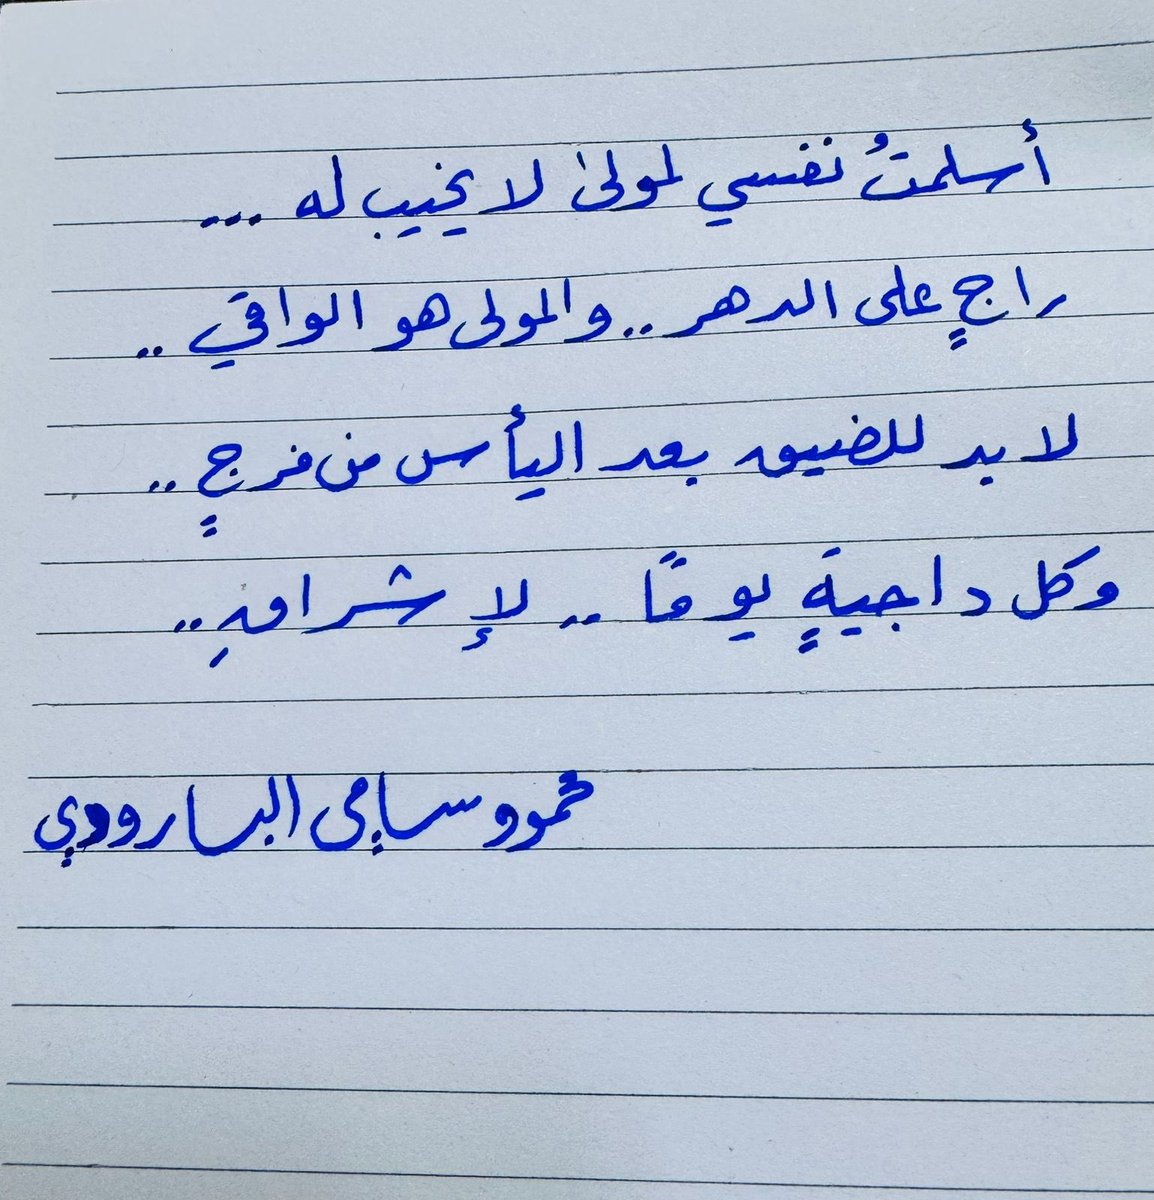 أسلمتُ نفسي لمولىٰ لا يخيب له ...
راجٍ على الدهر .. والمولى هو الواقي ..
لا بد للضيق بعد اليأس من فرجٍ ..
وكل داجيةٍ يومًا .. لإشراقِ ..
محمود سامي البارودي